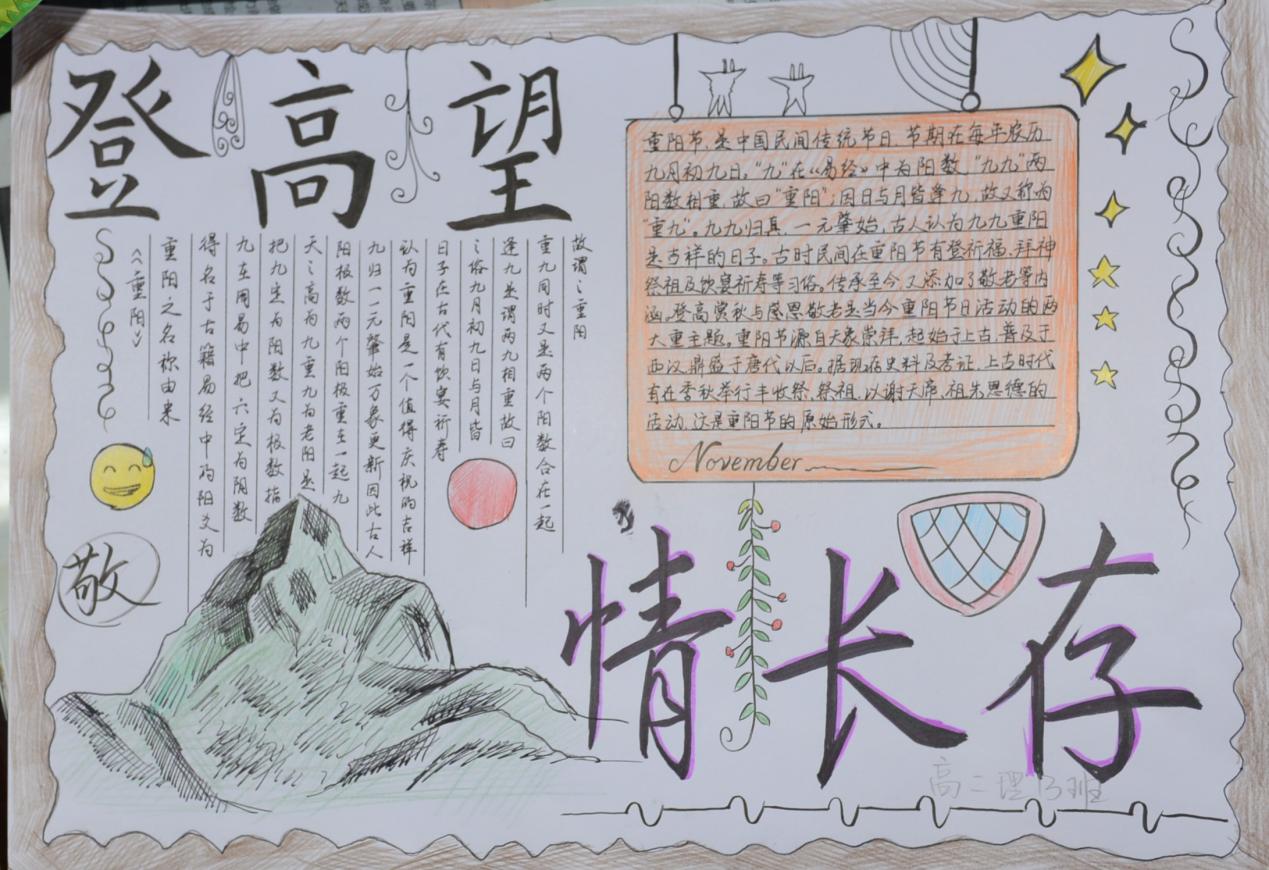 登高望
《重阳》
重阳之名称由来
得名于古籍易经中的阳爻为
九在周易中把六定为阴数
把九定为阳数又为极数指
天之高为九重九为老阳是
阳极数两个阳极重在一起九
九归一一元肇始万象更新因此古人
认为重阳是一个值得庆祝的吉祥
日子在古代有饮宴祈寿
之俗九月初九日与月皆
逢九是谓两九相重故曰
重九同时又是两个阳数合在一起
故谓之重阳
敬
重阳节,是中国民间传统节日,节期在每年农历
九月初九日。“九”在《易经》中为阳数,“九九”两
阳数相重,故曰“重阳”;因日与月皆逢九,故又称为
“重九”。九九归真,一元肇始,古人认为九九重阳
是吉祥的日子。古时民间在重阳节有登祈福、拜神
祭祖及饮宴祈寿等习俗。传承至今,又添加了敬老等内
涵,登高赏秋与感恩敬老是当今重阳节日活动的两
大重主题。重阳节源自天象崇拜,起始于上古,普及于
西汉,鼎盛于唐代以后。据现在史料及考证,上古时代
有在季秋举行丰收祭、祭祖,以谢天帝、祖先恩德的
活动,这是重阳节的原始形式。
November
情长存
高二理13班